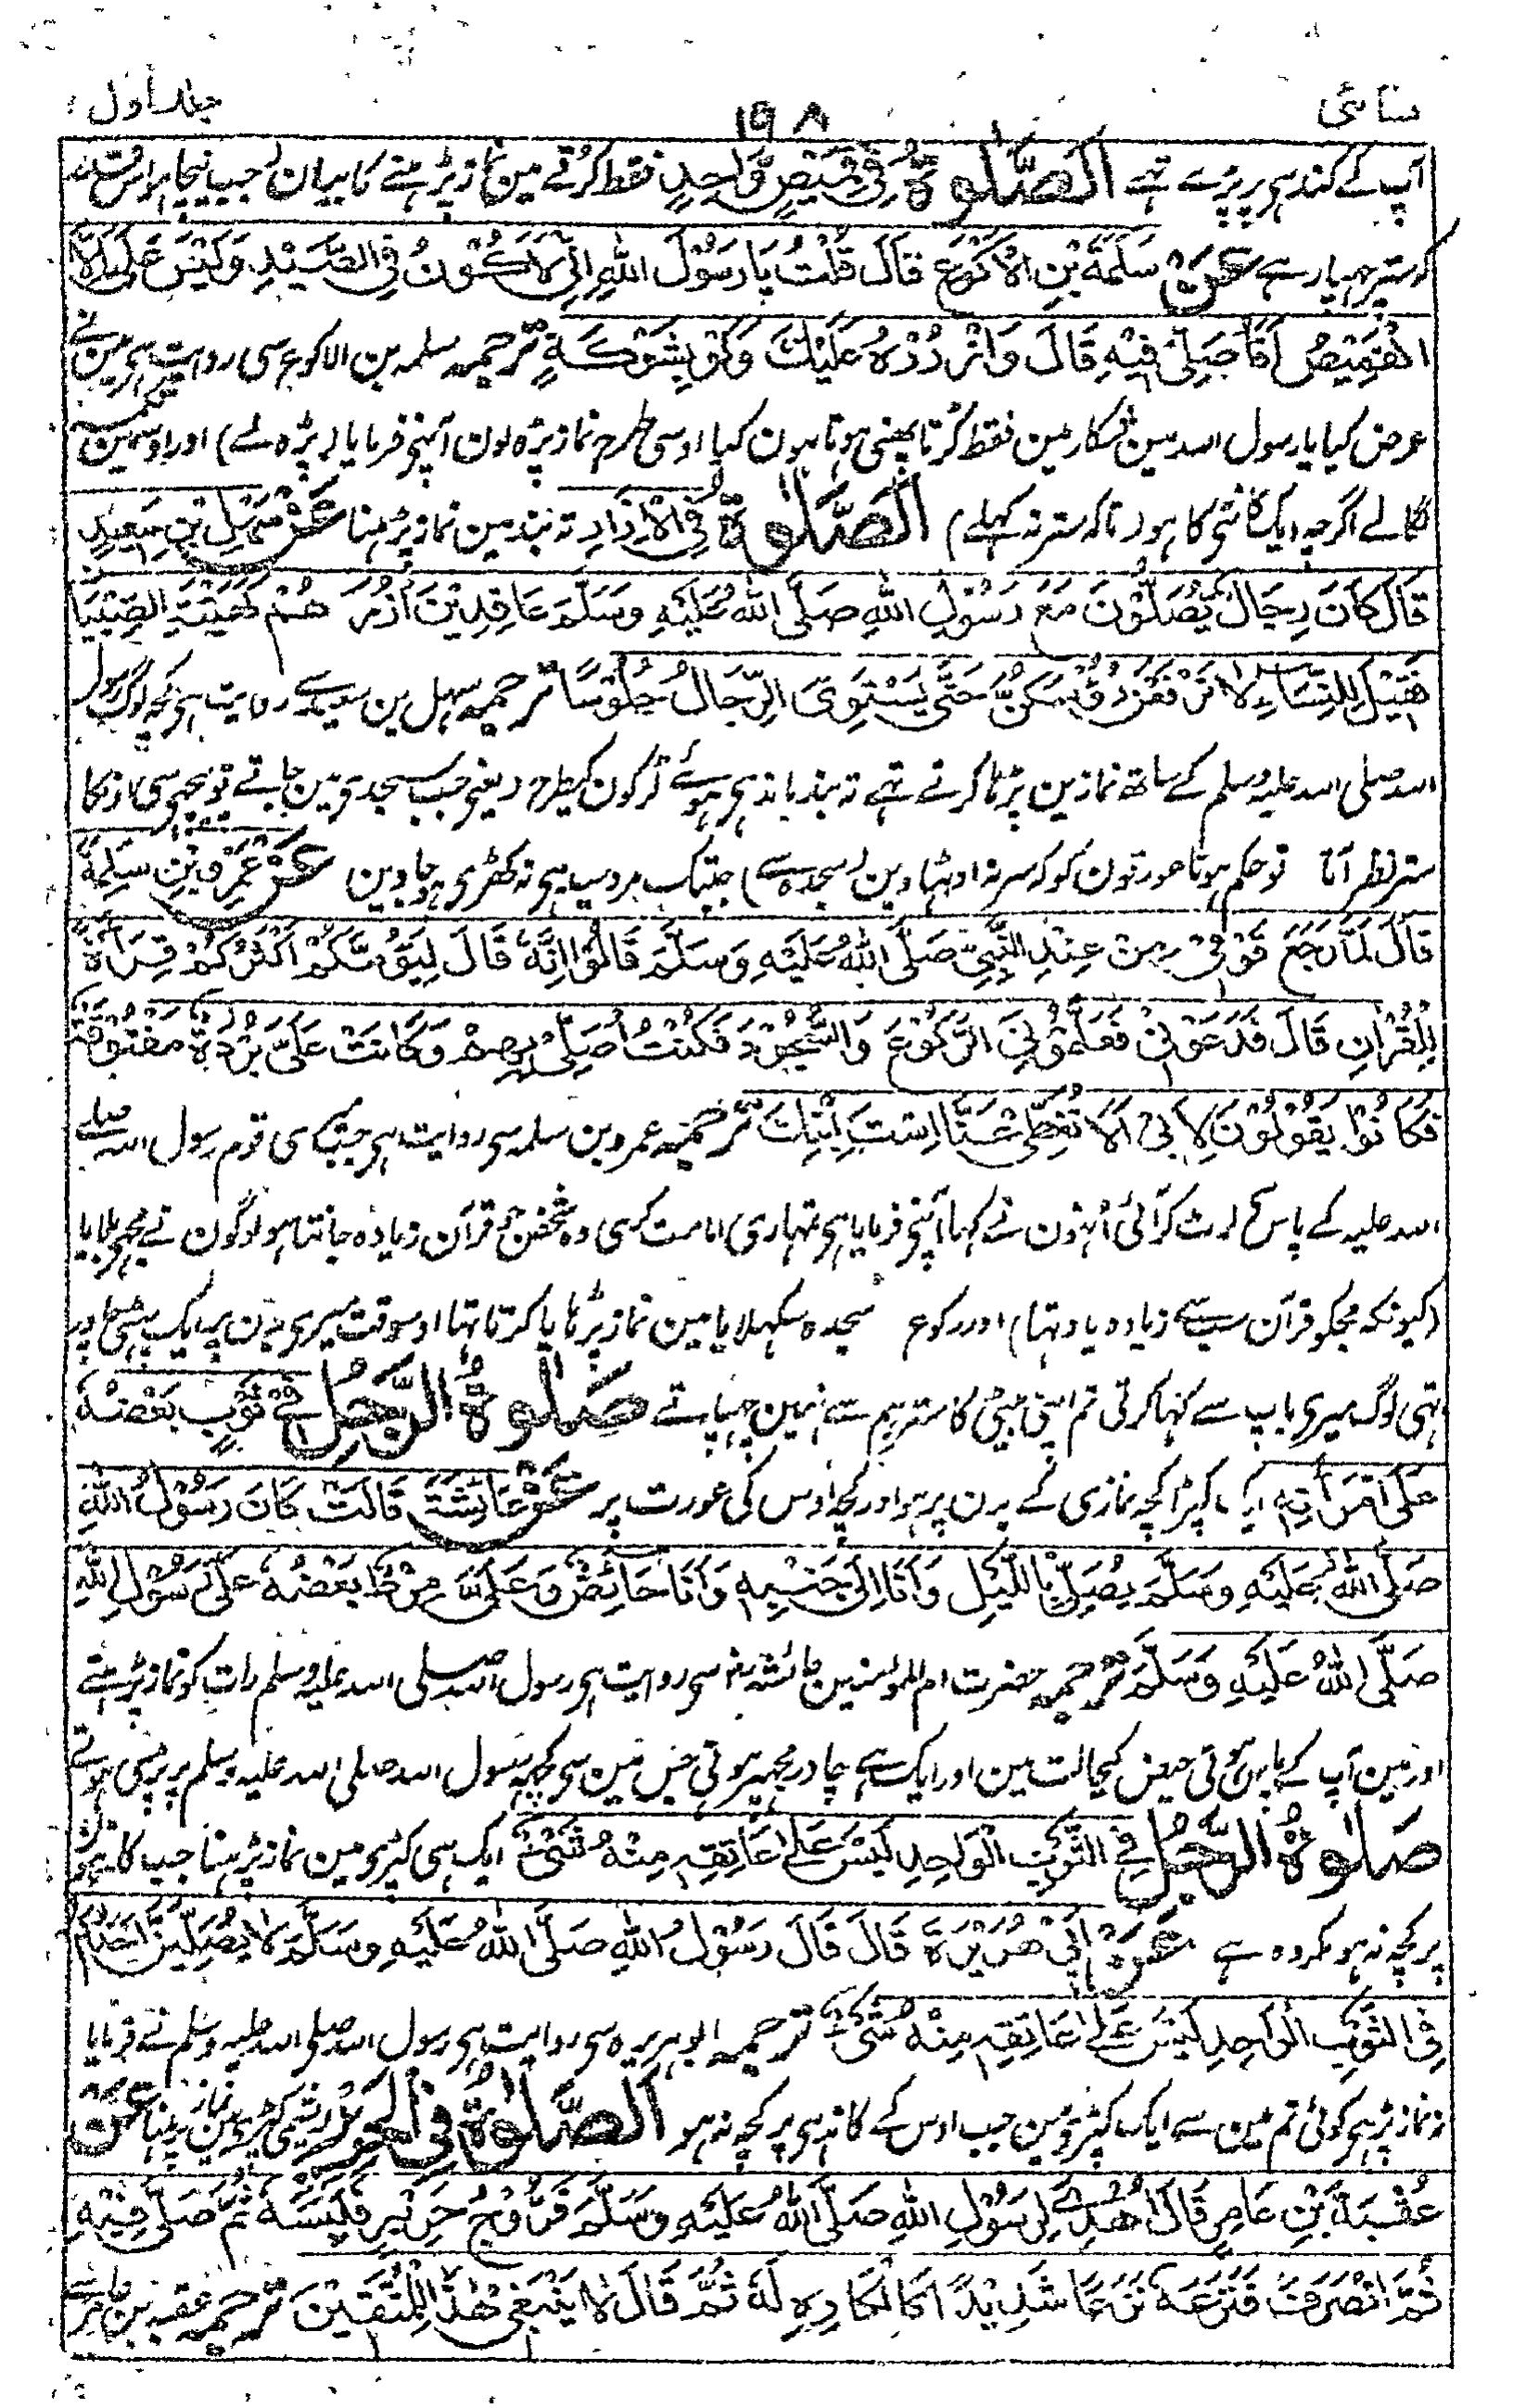 نسائی ۱۹۸ جلد اول
آپ کے کندہی پر پڑے تہے الصَّلٰوۃُ فِیْ قَمِیْصٍ وَّاحِدٍ فقط کُرتے مین نماز پڑہنے کا بیان
سَلَمَۃَ بْنِ الْاَکْوَعِ قَالَ قُلْتُ یَا رَسُوْلَ اللّٰہِ اِنِّیْ لَاَکُوْنُ فِی الصَّیْدِ وَلَیْسَ عَلَیَّ اِلَّا
الْقَمِیْصُ اَفَاُصَلِّیْ فِیْہِ قَالَ وَازْرُرْہُ عَلَیْکَ وَلَوْ بِشَوْکَۃٍ ترجمہ سلمہ بن الاکوع سی روایت ہی مین نے
عرض کیا یا رسول اللہ مین شکار مین فقط کُرتا پہنی ہوتا ہون کیا اوسی طرح نماز پڑہ لون آپنی فرمایا (پڑہ لے) اور اوسمین
لگالے اگرچہ ایک کانٹی کا ہو (تاکہ ستر نہ کہلے) الصَّلٰوۃُ فِی الْاِزَارِ تہ بند مین نماز پڑہنا عَنْ سَہْلِ بْنِ سَعْدٍ
قَالَ کَانَ رِجَالٌ یُّصَلُّوْنَ مَعَ رَسُوْلِ اللّٰہِ صَلَّی اللّٰہُ عَلَیْہِ وَسَلَّمَ عَاقِدِیْنَ اُزُرَہُمْ کَہَیْئَۃِ الصِّبْیَانِ
فَقِیْلَ لِلنِّسَاءِ لَا تَرْفَعْنَ رُؤُسَکُنَّ حَتّٰی یَسْتَوِیَ الرِّجَالُ جُلُوْسًا ترجمہ سہل بن سعد سے روایت ہی کچہ لوگ رسول
اللہ صلی اللہ علیہ وسلم کے ساتھ نمازین پڑہا کرتے تہے تہ بند باندہی ہوئے لڑکون کیطرح (یعنی جب سجدی مین جاتے تو پیچہی سی اونکا
ستر نظر آتا تو حکم ہوتا عورتون کو کہ سر نہ اوٹہاوین (سجدہ سے) جبتک مرد سیدہی نہ کھڑی ہو جاوین عَنْ عَمْرِو بْنِ سَلِمَۃَ
قَالَ لَمَّا رَجَعَ قَوْمِیْ مِنْ عِنْدِ النَّبِیِّ صَلَّی اللّٰہُ عَلَیْہِ وَسَلَّمَ قَالُوْا اِنَّہٗ قَالَ لِیَؤُمَّکُمْ اَکْثَرُکُمْ قِرَاءَۃً
لِلْقُرْاٰنِ قَالَ فَدَعَوْنِیْ فَعَلَّمُوْنِیَ الرُّکُوْعَ وَالسُّجُوْدَ فَکُنْتُ اُصَلِّیْ بِہِمْ وَکَانَتْ عَلَیَّ بُرْدَۃٌ مَفْتُوْقَۃٌ
فَکَانُوْا یَقُوْلُوْنَ لِاَبِیْ اَلَا تُغَطِّیْ عَنَّا اِسْتَ ابْنِکَ ترجمہ عمرو بن سلمہ سی روایت ہی جب میری قوم رسول اللہ صلے
اللہ علیہ کے پاس لوٹ کر آئی اُنہون نے کہا آپنی فرمایا ہی تمہاری امامت کری وہ شخص جو قرآن زیادہ جانتا ہو لوگون نے مجہی بلایا
(کیونکہ مجکو قرآن سب سے زیادہ یاد تہا) اور رکوع سجدہ سکہلایا مین نماز پڑہایا کرتا تہا اوسوقت میری بدن پر ایک پہٹی چادر
تہی لوگ میری باپ سے کہا کرتی تم اپنی بیٹی کا ستر ہم سے نہین چہپاتے صَلٰوۃُ الرَّجُلِ فِیْ ثَوْبٍ بَعْضُہٗ
عَلَی امْرَاَتِہٖ ایک کپڑا کچہ نمازی کے بدن پر ہو اور کچہ اوس کی عورت پر عَنْ عَائِشَۃَ قَالَتْ کَانَ رَسُوْلُ اللّٰہِ
صَلَّی اللّٰہُ عَلَیْہِ وَسَلَّمَ یُصَلِّیْ بِاللَّیْلِ وَاَنَا اِلٰی جَنْبِہٖ وَاَنَا حَائِضٌ وَعَلَیَّ مِرْطٌ بَعْضُہٗ عَلٰی رَسُوْلِ اللّٰہِ
صَلَّی اللّٰہُ عَلَیْہِ وَسَلَّمَ ترجمہ حضرت ام المؤمنین عائشہ سی روایت ہی رسول اللہ صلی اللہ علیہ وسلم رات کو نماز پڑہتے
اور مین آپ کے پاس ہوتی حیض کیحالت مین اور ایک ہی چادر مجہپر ہوتی جس مین سی کچہ رسول اللہ صلی اللہ علیہ وسلم پر بہی ہوتے
صَلٰوۃُ الرَّجُلِ فِی الثَّوْبِ الْوَاحِدِ لَیْسَ عَلٰی عَاتِقِہٖ مِنْہُ شَیْءٌ ایک ہی کپڑی مین نماز پڑہنا جب کاندہی
پر کچہ نہ ہو مکروہ ہے عَنْ اَبِیْ ہُرَیْرَۃَ قَالَ قَالَ رَسُوْلُ اللّٰہِ صَلَّی اللّٰہُ عَلَیْہِ وَسَلَّمَ لَا یُصَلِّیَنَّ اَحَدُکُمْ
فِی الثَّوْبِ الْوَاحِدِ لَیْسَ عَلٰی عَاتِقِہٖ مِنْہُ شَیْءٌ ترجمہ ابو ہریرہ سی روایت ہی رسول اللہ صلی اللہ علیہ وسلم نے فرمایا
نہ نماز پڑہی کوئی تم مین سے ایک کپڑی مین جب اوس کے کاندہی پر کچہ نہ ہو الصَّلٰوۃُ فِی الْحَرِیْرِ ریشمی کپڑی مین نماز پڑہنا عَنْ
عُقْبَۃَ بْنِ عَامِرٍ قَالَ اُہْدِیَ لِرَسُوْلِ اللّٰہِ صَلَّی اللّٰہُ عَلَیْہِ وَسَلَّمَ فَرُّوْجُ حَرِیْرٍ فَلَبِسَہٗ ثُمَّ صَلّٰی فِیْہِ
ثُمَّ انْصَرَفَ فَنَزَعَہٗ نَزْعًا شَدِیْدًا کَالْکَارِہِ لَہٗ ثُمَّ قَالَ لَا یَنْبَغِیْ ہٰذَا لِلْمُتَّقِیْنَ ترجمہ عقبہ بن عامر سے